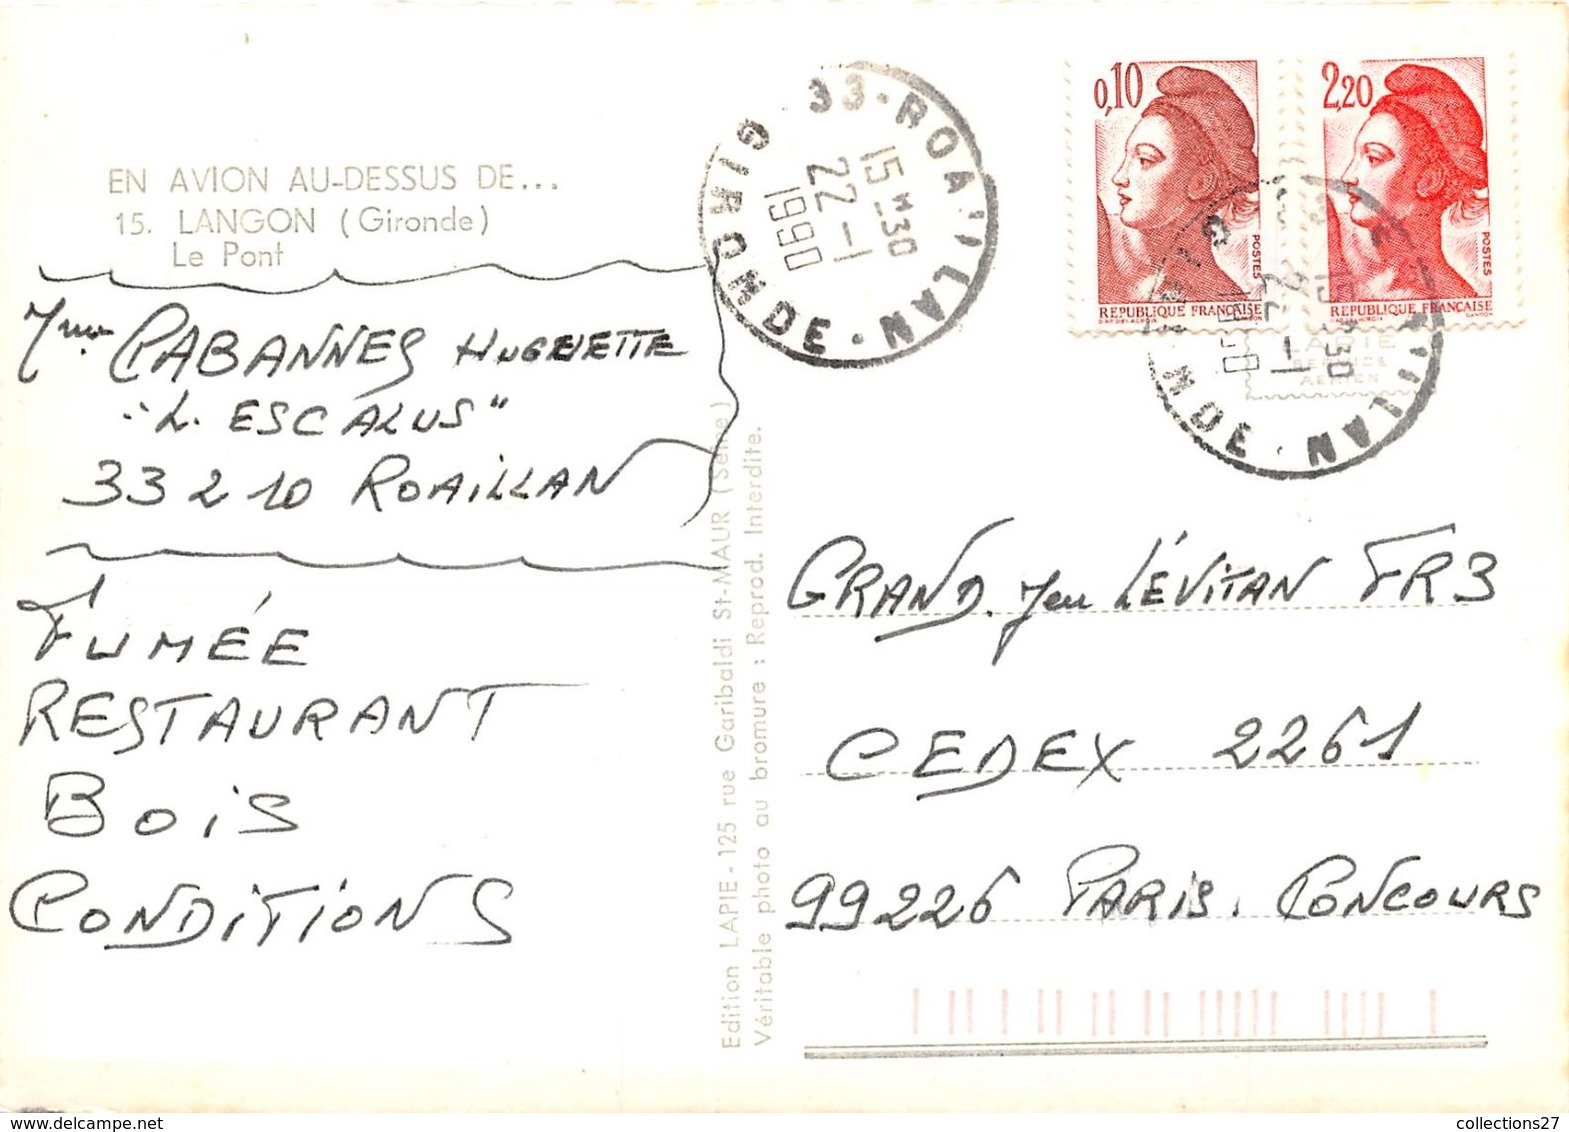 EN AVION AU-DESSUS DE...
15. LANGON (Gironde)
Le Pont
Mme CABANNES HUGUETTE
"L. ESCALUS"
33210 ROAILLAN
FUMÉE
RESTAURANT
BOIS
CONDITIONS
Edition LAPIE - 125 rue Garibaldi St-MAUR (Seine)
Véritable photo au bromure : Reprod. Interdite.
33-ROAILLAN
15H30
22-1
1990
GIRONDE
0,10
POSTES
REPUBLIQUE FRANÇAISE
2,20
POSTES
REPUBLIQUE FRANÇAISE
LAPIE
SERVICE
AERIEN
GRAND. Jeu LÉVITAN FR3
CEDEX 2261
99226 PARIS. CONCOURS
collections27